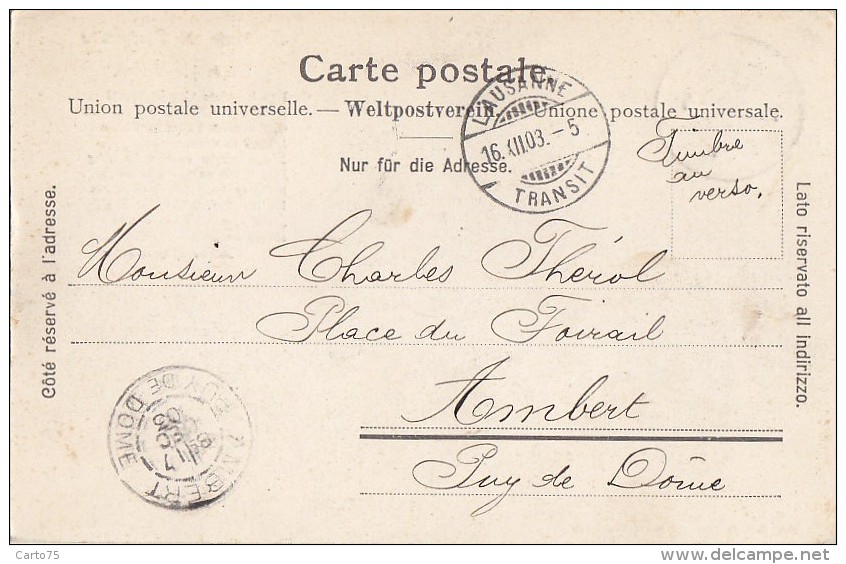 Carte postale.
Union postale universelle. — Weltpostverein. — Unione postale universale.
Nur für die Adresse.
LAUSANNE
16.XII.03. - 5
TRANSIT
Timbre
au
verso.
Côté réservé à l'adresse.
Lato riservato all indirizzo.
Monsieur Charles Thérol
Place du Foirail
Ambert
Puy de Dôme
AMBERT
PUY DE DOME
Carto75
delcampe.net